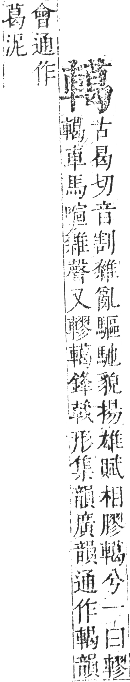 轕
古曷切音割雜亂驅馳貌揚雄賦相膠轕兮一曰轇
轕車馬喧雜聲又轇轕鋒㦸形集韻廣韻通作輵韻
會通作
葛泥